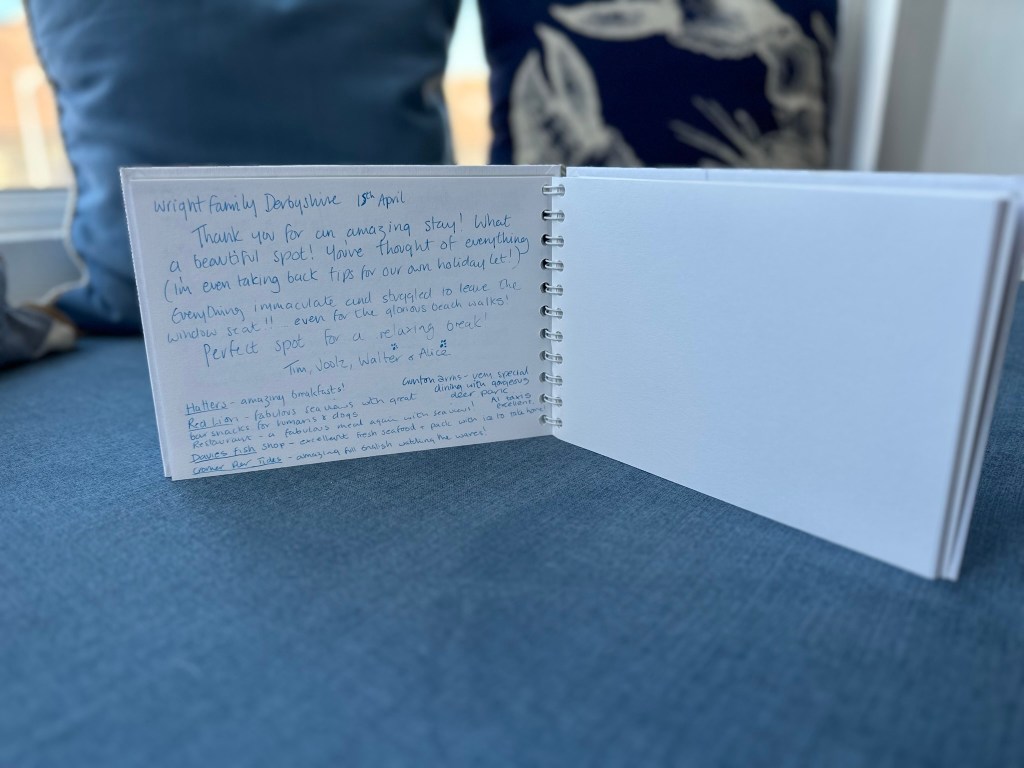 Wright Family Derbyshire 15th April
Thank you for an amazing stay! What
a beautiful spot! You've thought of everything
(I'm even taking back tips for our own holiday let!)
Everything immaculate and struggled to leave the
window seat!! - even for the glorious beach walks!
Perfect spot for a relaxing break!
Tim, Joolz, Walter & Alice
Hatters - amazing breakfasts!
Red Lion - fabulous sea views with great
bar snacks for humans & dogs
Restaurant - a fabulous meal again with sea views!
Davies Fish Shop - excellent fresh seafood & pack with ice to take home!
Cromer Pier Tides - amazing full English watching the waves!
Gunton Arms - very special
dining with gorgeous
deer park
excellent